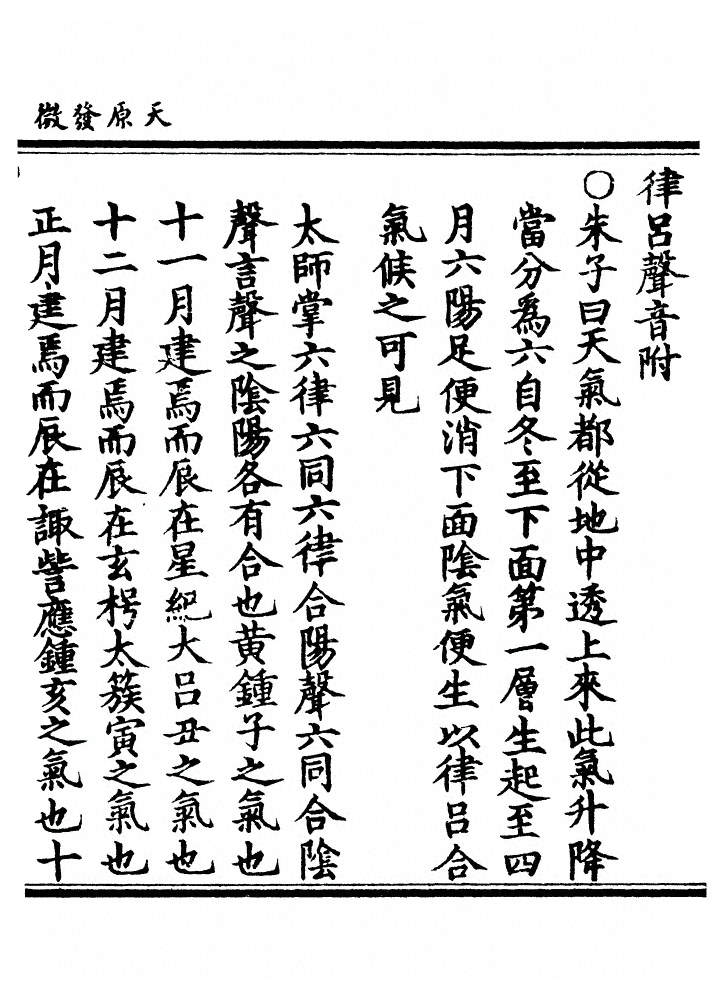 天原發微
律呂聲音附
○朱子曰天氣都從地中透上來此氣升降
當分爲六自冬至下面第一層生起至四
月六陽足便消下面陰氣便生以律呂合
氣候之可見
太師掌六律六同六律合陽聲六同合陰
聲言聲之陰陽各有合也黃鍾子之氣也
十一月建焉而辰在星紀大呂丑之氣也
十二月建焉而辰在玄枵太簇寅之氣也
正月建焉而辰在諏訾應鍾亥之氣也十